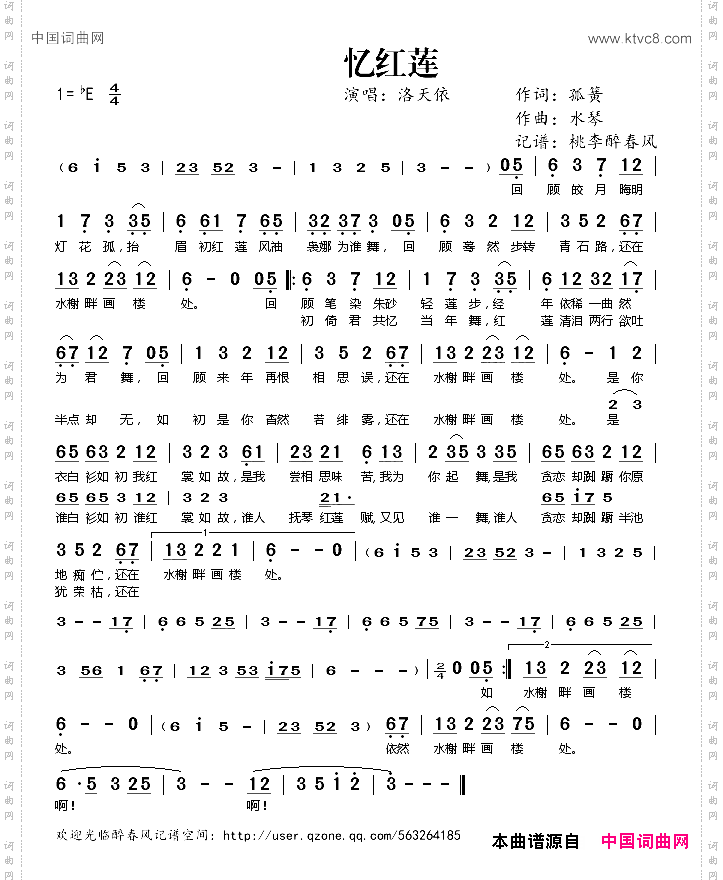 中国词曲网 www.ktvc8.com
忆红莲
1=♭E 4/4 演唱：洛天依 作词：孤簧
作曲：水琴
记谱：桃李醉春风
(6 i 5 3 | 23 52 3 - | 1 3 5 2 | 3 - - -) 05 | 6 3 7 12 |
回 顾 皎 月 晦明
1 7 3 35 | 6 61 7 65 | 32 37 3 05 | 6 3 2 12 | 3 5 2 67 |
灯 花 孤，抬 眉 初红 莲 风袖 袅娜 为谁 舞， 回 顾 蓦 然 步转 青 石 路，还在
13 2 23 12 | 6 - 0 05 |: 6 3 7 12 | 1 7 3 35 | 6 12 32 17 |
水榭 畔 画 楼 处。 回 顾 笔 染 朱砂 轻 莲 步，经 年 依稀 一曲 然
初 倚 君 共忆 当 年 舞，红 莲 清泪 两行 欲吐
67 12 7 05 | 1 3 2 12 | 3 5 2 67 | 13 2 23 12 | 6 - 1 2 |
为 君 舞， 回 顾 来 年 再恨 相 思 误，还在 水榭 畔 画 楼 处。 是 你
2 3
半点 却 无， 如 初 是 你 杳然 若 绯 雾，还在 水榭 畔 画 楼 处。 是
65 63 2 12 | 3 2 3 61 | 23 21 6 13 | 2 35 3 35 | 65 63 5 12 |
衣白 衫如 初 我红 裳 如 故，是我 尝相 思味 苦，我为 你 起 舞，是我 贪恋 却踟 蹰 你原
65 65 3 13 | 3 2 3 21· 65 i7 5
谁白 衫如 初 谁红 裳 如 故，谁人 抚琴 红莲 赋，又见 谁 一 舞，谁人 贪恋 却踟 蹰 半池
3 5 2 67 | 13 2 2 1 | 6 - - 0 | (6 i 5 3 | 23 52 3 - | 1 3 2 5 |
地 痴 伫，还在 水榭 畔 画 楼 处。
犹 荣 枯，还在
3 - - 17 | 6 6 5 25 | 3 - - 17 | 6 6 5 75 | 3 - - 17 | 6 6 5 25 |
3 56 1 67 | 12 3 53 i75 | 6 - - -) | 2/4 0 05 :| 13 2 23 12 |
如 水榭 畔 画 楼
6 - - 0 | (6 i 5 - | 23 52 3) 67 | 13 2 23 75 | 6 - - 0 |
处。 依然 水榭 畔 画 楼 处。
6 · 5 3 25 | 3 - - 12 | 3 5 i 2 | 3 - - - ‖
啊！ 啊！
欢迎光临醉春风记谱空间：http://user.qzone.qq.com/563264185
本曲谱源自 中国词曲网